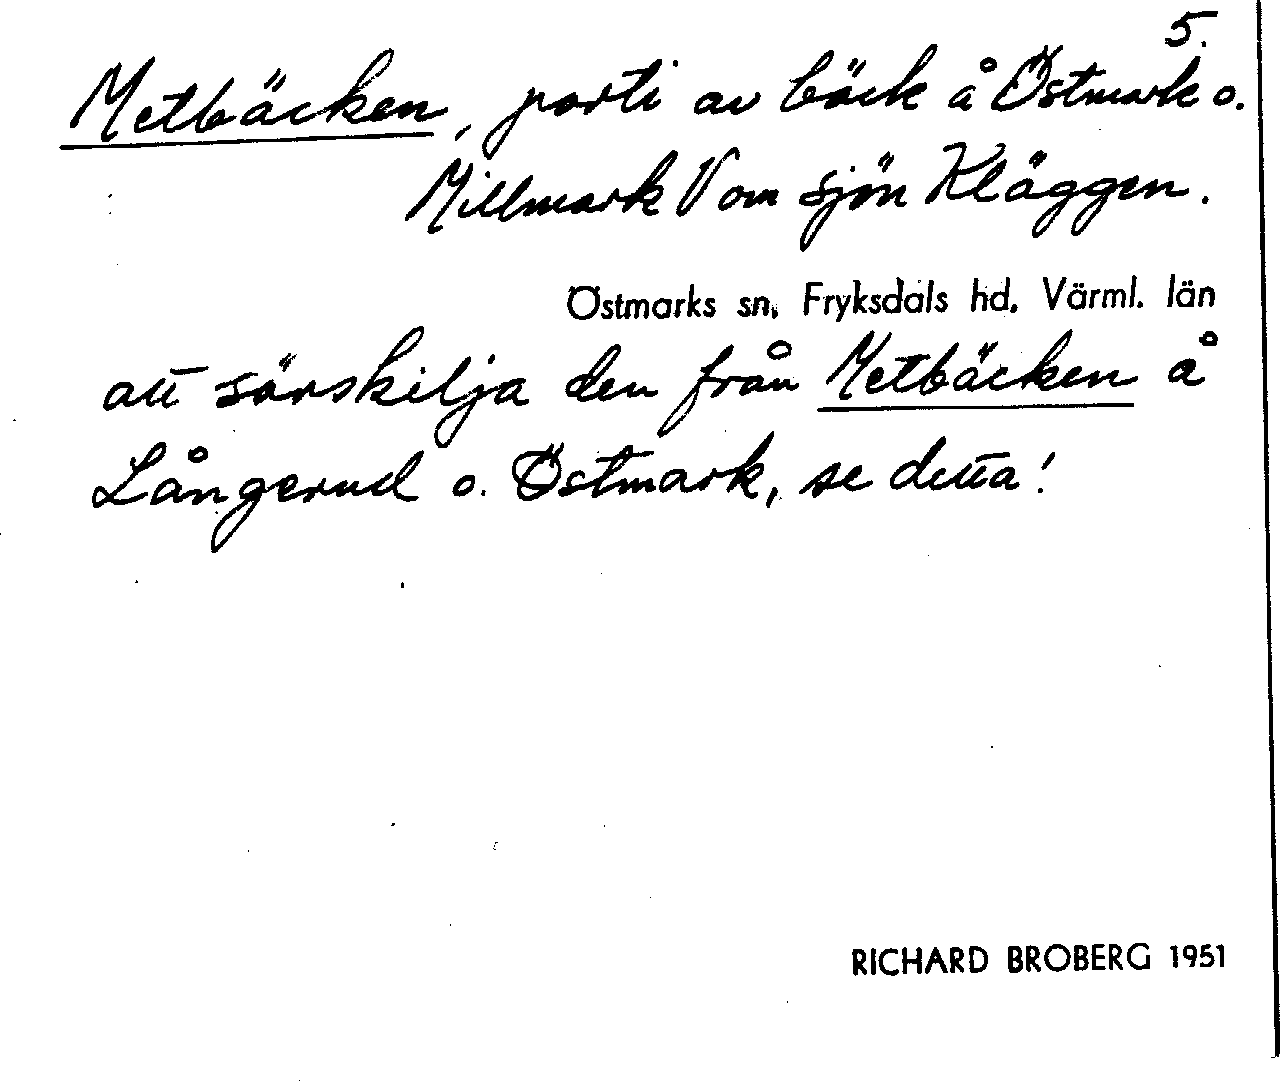 5.
Metbäcken, parti av bäck å Östmark o.
Millmark V om sjön Kläggen.
Östmarks sn, Fryksdals hd. Värml. län
att särskilja den från Metbäcken å
Långerud o. Östmark, se detta!
RICHARD BROBERG 1951